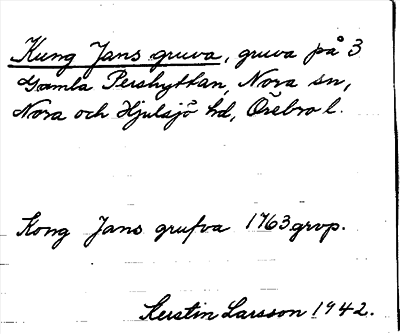 Kung Jans gruva, gruva på 3
Gamla Pershyttan, Nora sn,
Nora och Hjulsjö hd, Örebro l.
Kong Jans grufva 1763 grvp.
Kerstin Larsson 1942.